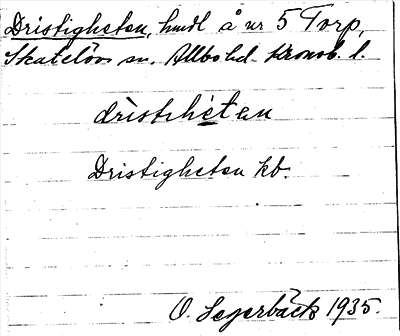 Dristigheten, hmdl å nr 5 Torp,
Skatelövs sn. Allbo hd. Kronob. l.
dristihetan
Dristigheten kb.
O. Segerbäck 1935.